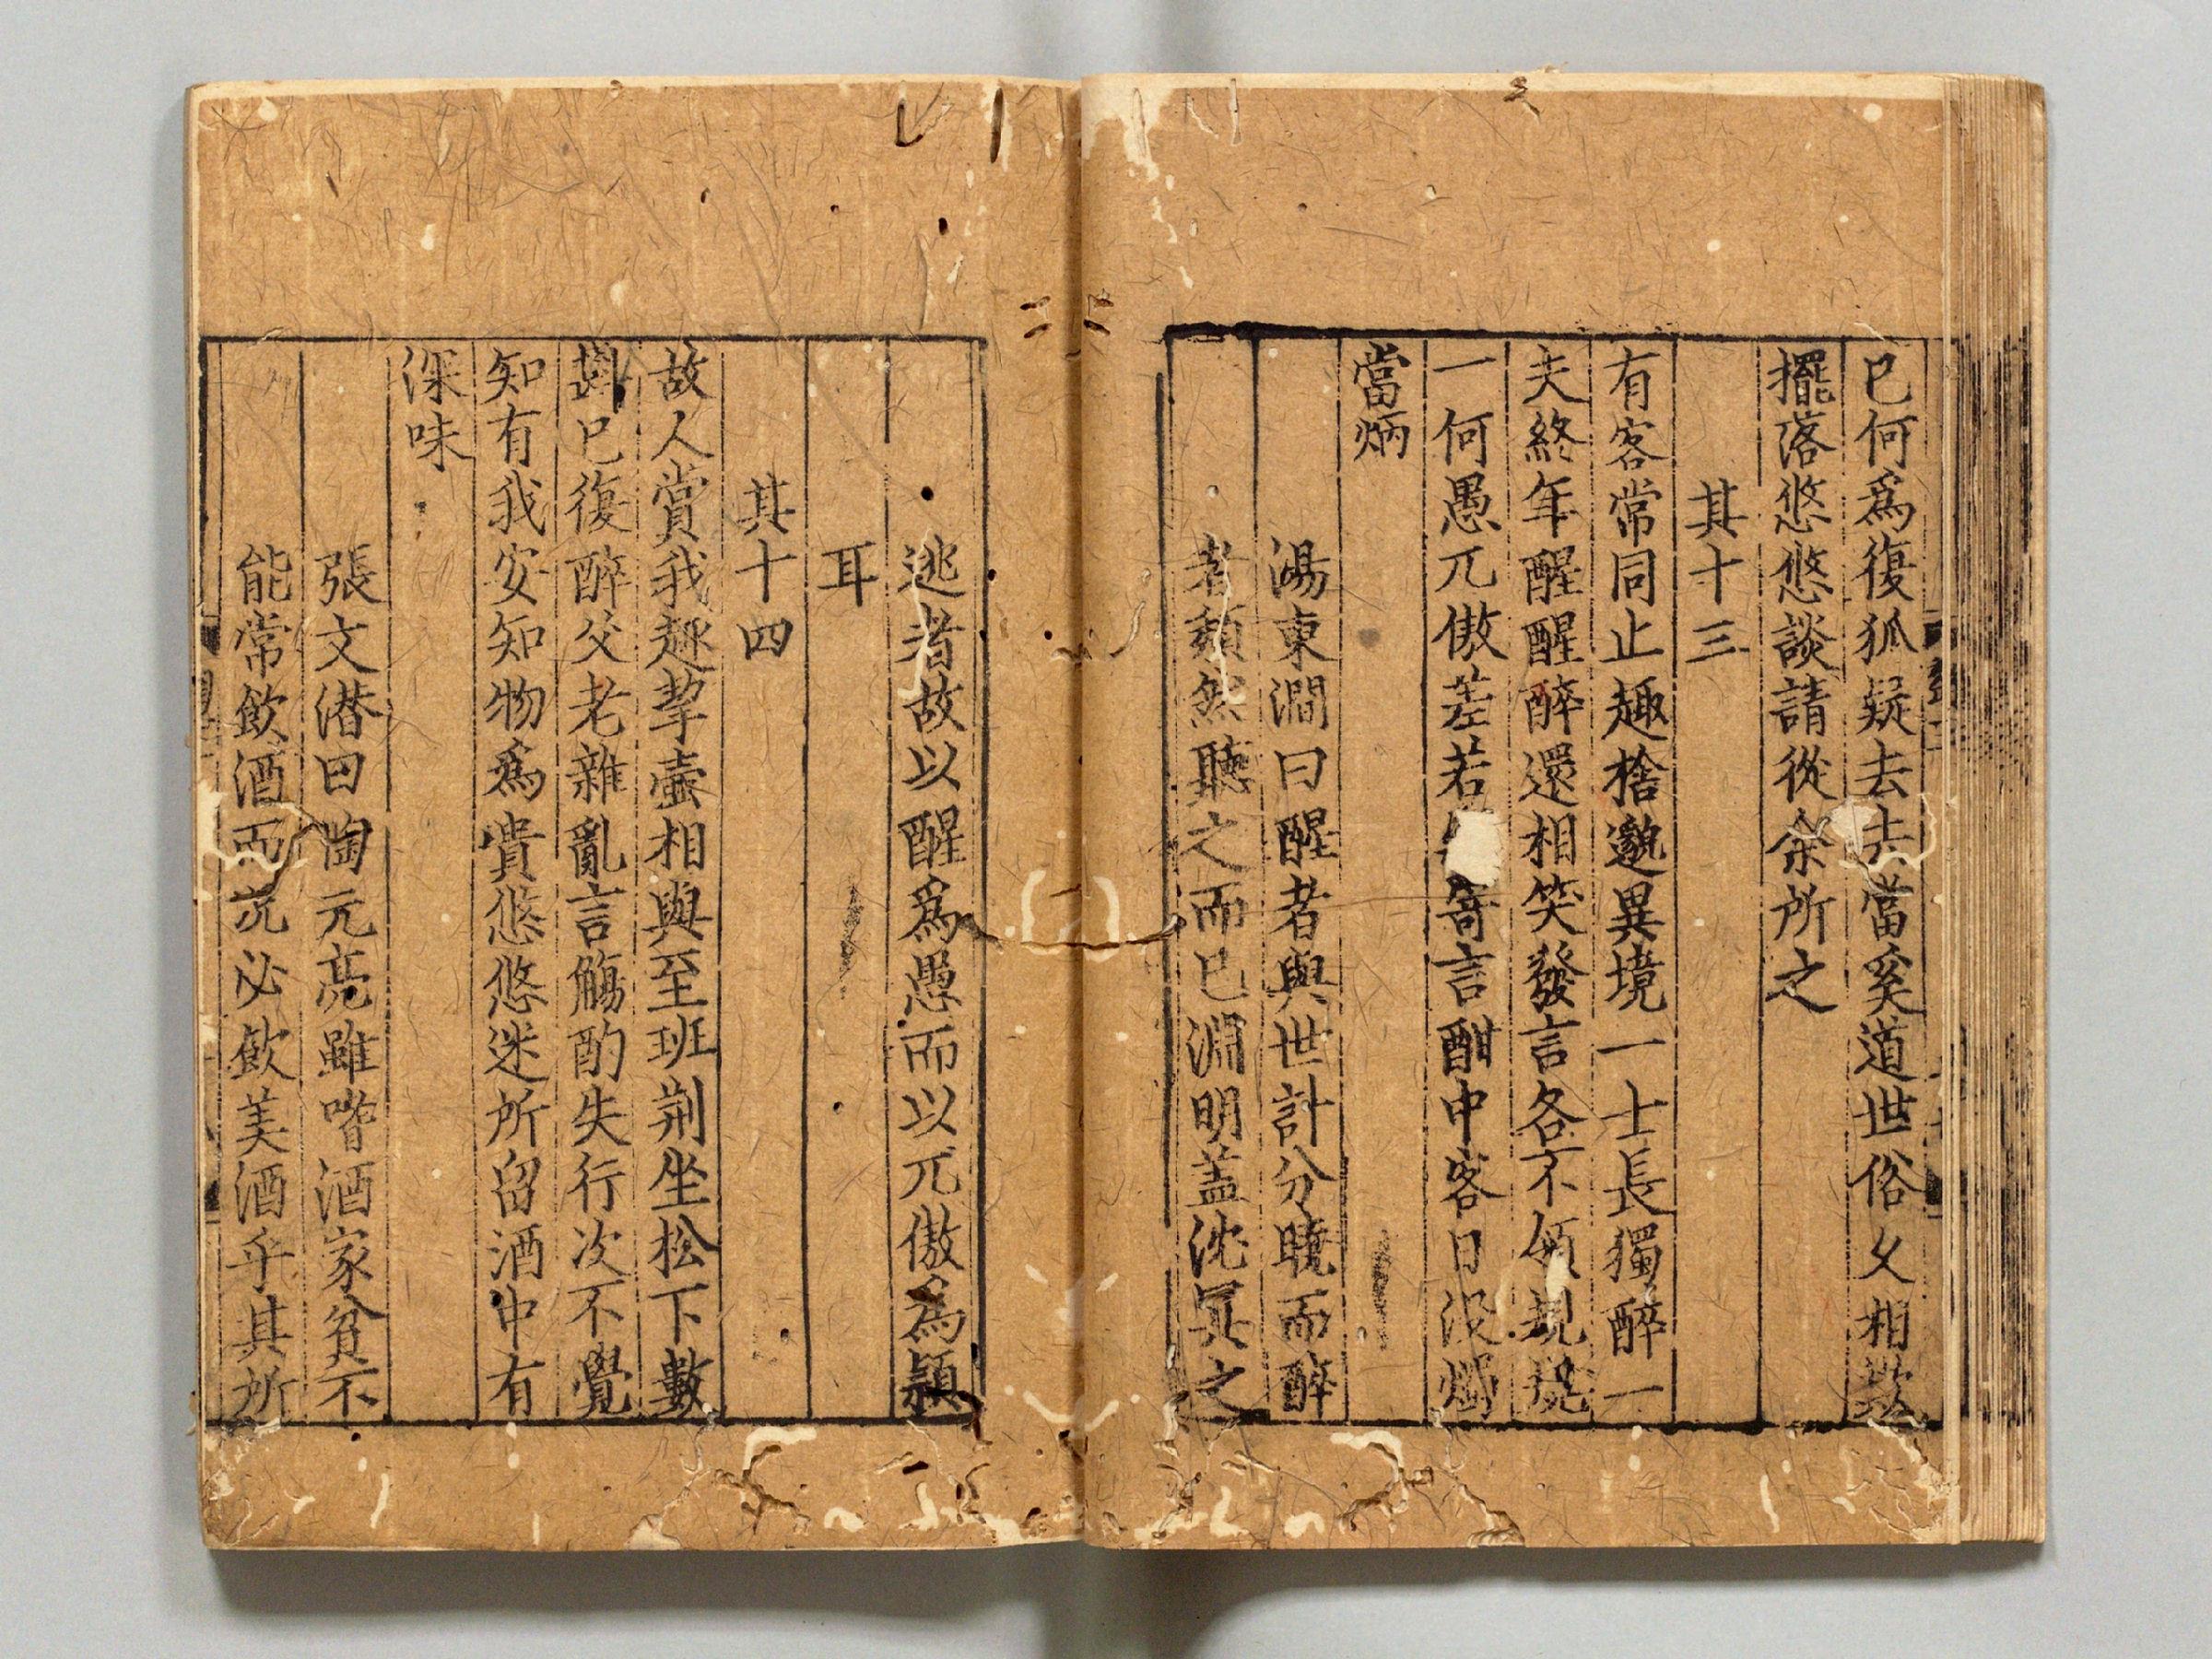 已何爲復狐疑去去當奚道世俗乆相欺
擺落悠悠談請從余所之
其十三
有客常同止趣捨邈異境一士長獨醉一
夫終年醒醒醉還相笑發言各不領規規
一何愚兀傲差若寄言酣中客日没燭
當炳
湯東澗曰醒者與世計分曉而醉
者頹然聽之而已淵明盖沈冥之
逃者故以醒爲愚而以兀傲爲頴
耳
其十四
故人賞我趣挈壷相與至班荆坐松下數
斟已復醉父老雜亂言觴酌失行次不覺
知有我安知物爲貴悠悠迷所留酒中有
深味
張文潜曰陶元亮雖嗜酒家貧不
能常飲酒而况必飲美酒乎其所